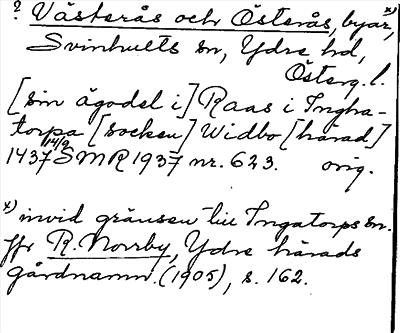 ? Västerås och Österås, byar, x)
Svinhults sn, Ydre hd,
Österg. l.
[sin ägodel i] Raas i Ingha-
torpa [socken] Widbo [härad]
1437 14/9 SMR 1937 nr. 623. orig.
x) invid gränsen till Ingatorps sn.
Jfr R. Norrby, Ydre härads
gårdnamn. (1905), s. 162.